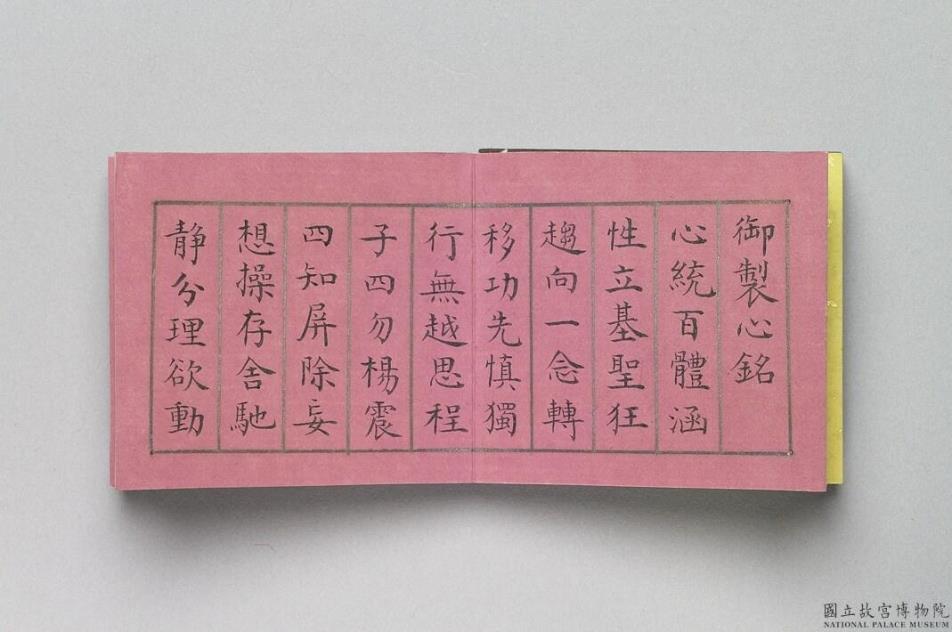 御製心銘
心統百體涵
性立基聖狂
趨向一念轉
移功先慎獨
行無越思程
子四勿楊震
四知屏除妄
想操存舍馳
静分理欲動
國立故宮博物院
NATIONAL PALACE MUSEUM